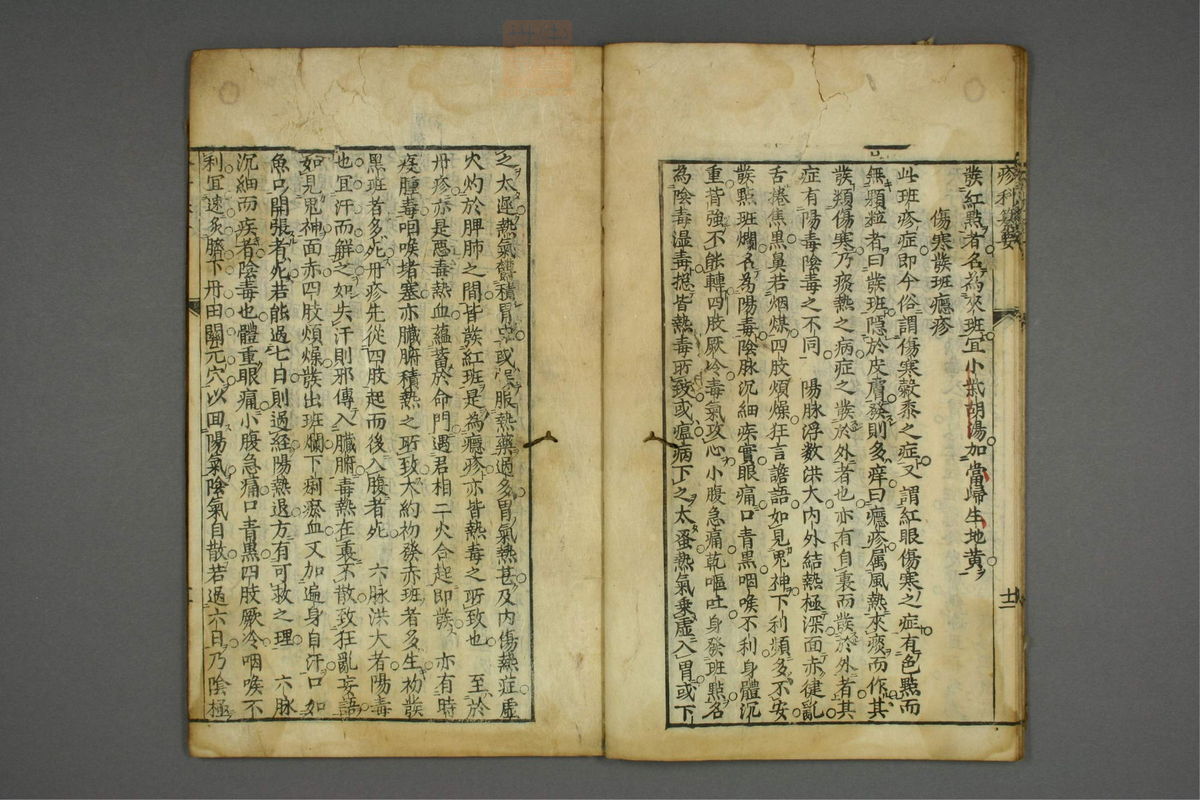 疹科纂要
發紅點者名為夾班宜小柴胡湯加當歸生地黃
傷寒發班癮疹
此班疹症即今俗謂傷寒穀黍之症又謂紅眼傷寒之症有色點而
無顆粒者曰發班隱於皮膚發則多痒曰癮疹属風熱來痰而作其
發類傷寒乃痰熱之病症之發於外者也亦有自裏而發於外者其
症有陽毒陰毒之不同 陽脉浮数洪大内外結熱極深面赤健亂
舌捲焦黑鼻若烟煤四肢煩燥狂言譫語如見鬼神下利頻多不安
發㸃班爛名為陽毒陰脉沉細疾實眼痛口青黑咽喉不利身體沉
重背強不能轉四肢厥冷毒氣攻心小腹急痛乾嘔吐身發班㸃名
為陰毒湿毒㧾皆熱毒所致或瘟病下之太蚤熱氣乗虚入胃或下
十二
之太遲熱氣鬱積胃中或服熱藥過多胃氣熱甚及内傷熱症虚
火灼於脾肺之間皆發紅班是為癮疹亦皆熱毒之所致也 至於
丹疹亦是惡毒熱血蘊蓄於命門遇君相二火合起即發 亦有時
疫腫毒咽喉堵塞亦臓腑積熱之所致大約初發赤班者多生初發
黑班者多死丹疹先從四肢起而後入腹者死 六脉洪大者陽毒
也宜汗而解之如失汗則邪傳入臓腑毒熱在裏不散致狂亂妄語
如見鬼神面赤四肢煩燥發出班爛下痢瘀血又加遍身自汗口如
魚口開張者死若能過七日則過経陽熱退方有可救之理 六脉
沉細而疾者陰毒也體重眼痛小腹急痛口青黒四肢厥冷咽喉不
利宜速灸臍下丹田關元穴以回陽氣陰氣自散若過六日乃陰極